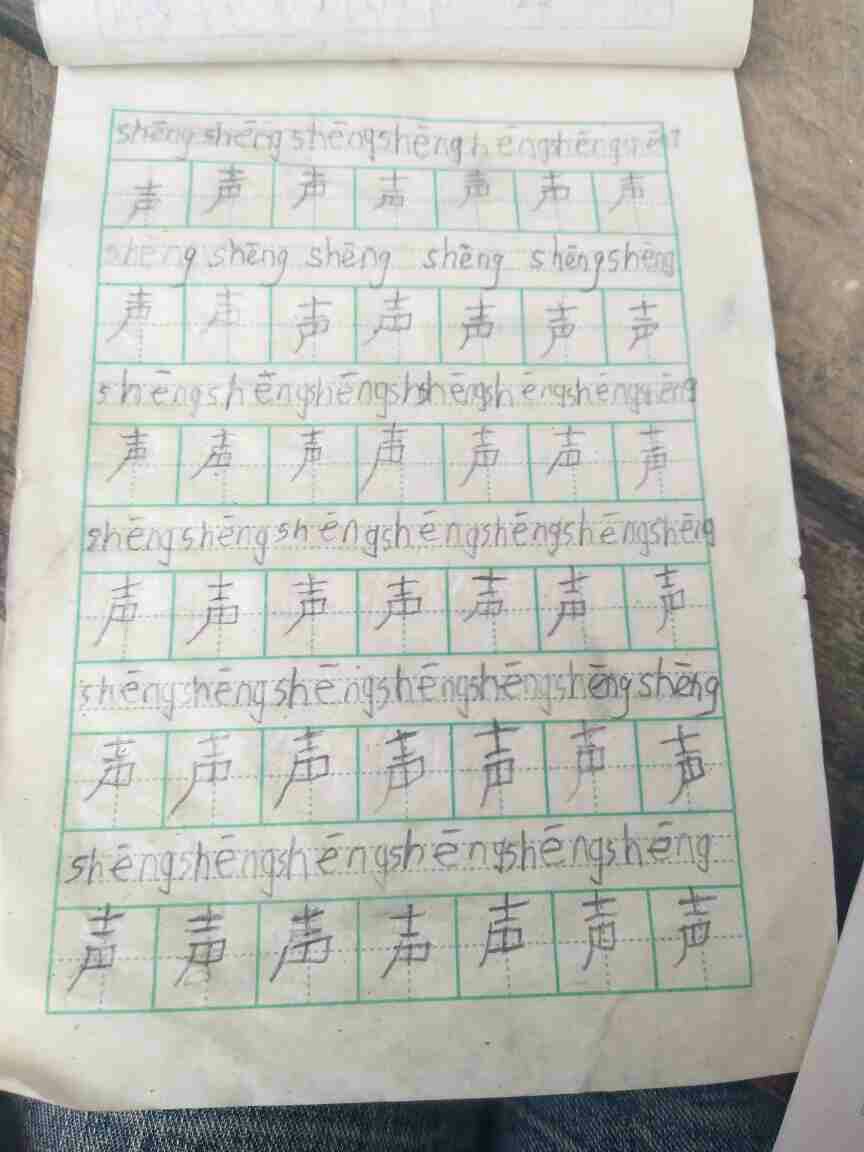 shēng shēng shēng shēng hēng shēng shēng
声 声 声 声 声 声 声
shēng shēng shēng shēng shēng shēng
声 声 声 声 声 声 声
shēng shēng shēng sh shēng shēng shēng shēng
声 声 声 声 声 声 声
shēng shēng shēng shēng shēng shēng shēng
声 声 声 声 声 声 声
shēng shēng shēng shēng shēng shēng shēng
声 声 声 声 声 声 声
shēng shēng shēng shēng shēng shēng
声 声 声 声 声 声 声